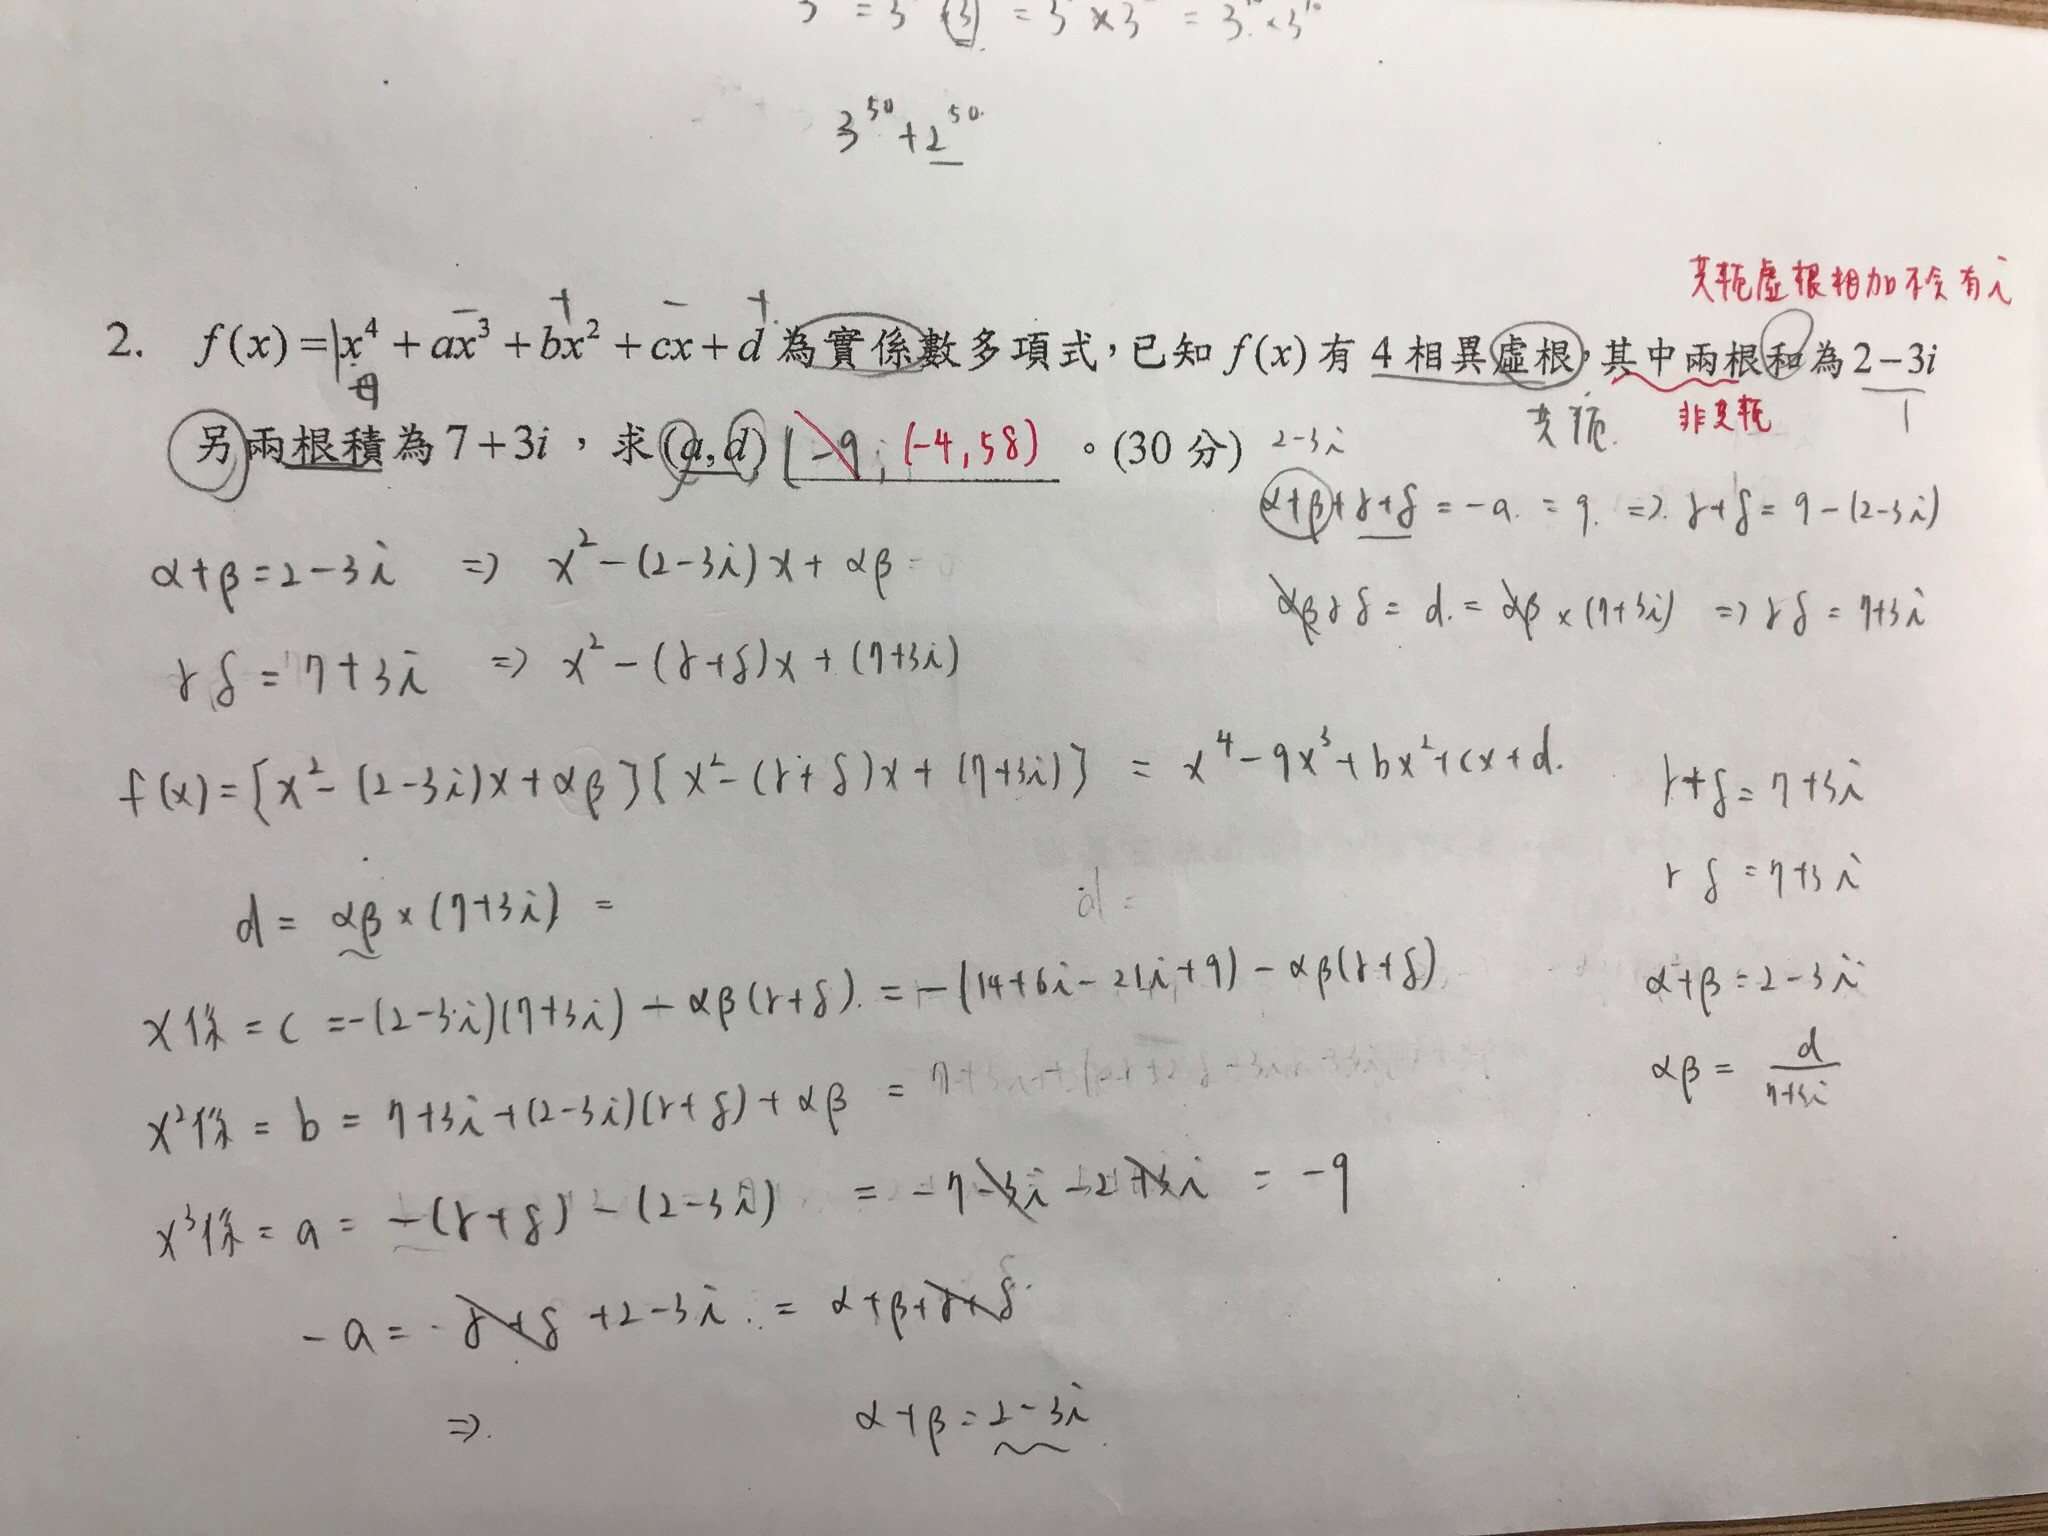 3^50 + 2^50
共軛虛根相加不會有i
− + − +
2. f(x) = x^4 + ax^3 + bx^2 + cx + d 為實係數多項式，已知 f(x) 有 4 相異虛根，其中兩根和為 2 − 3i
共軛 非共軛
另兩根積為 7 + 3i ，求 (a, d) −9, (−4, 58) 。(30 分) 2−3i
α+β+γ+δ = −a = 9 ⇒ γ+δ = 9−(2−3i)
α+β = 2−3i ⇒ x²−(2−3i)x + αβ = 0
αβγδ = d = αβ × (7+3i) ⇒ γδ = 7+3i
γδ = 7+3i ⇒ x²−(γ+δ)x + (7+3i)
f(x) = [x²−(2−3i)x + αβ][x²−(γ+δ)x + (7+3i)] = x^4 − 9x³ + bx² + cx + d.
γ+δ = 7+3i
γδ = 7+3i
d = αβ × (7+3i) =
d =
α+β = 2−3i
x係 = c = −(2−3i)(7+3i) − αβ(γ+δ) = −(14+6i−21i+9) − αβ(γ+δ)
αβ = d/(7+3i)
x²係 = b = 7+3i+(2−3i)(γ+δ)+αβ =
x³係 = a = −(γ+δ)−(2−3i) = −7−3i−2+3i = −9
−a = γ+δ+2−3i = α+β+γ+δ
⇒ α+β = 2−3i